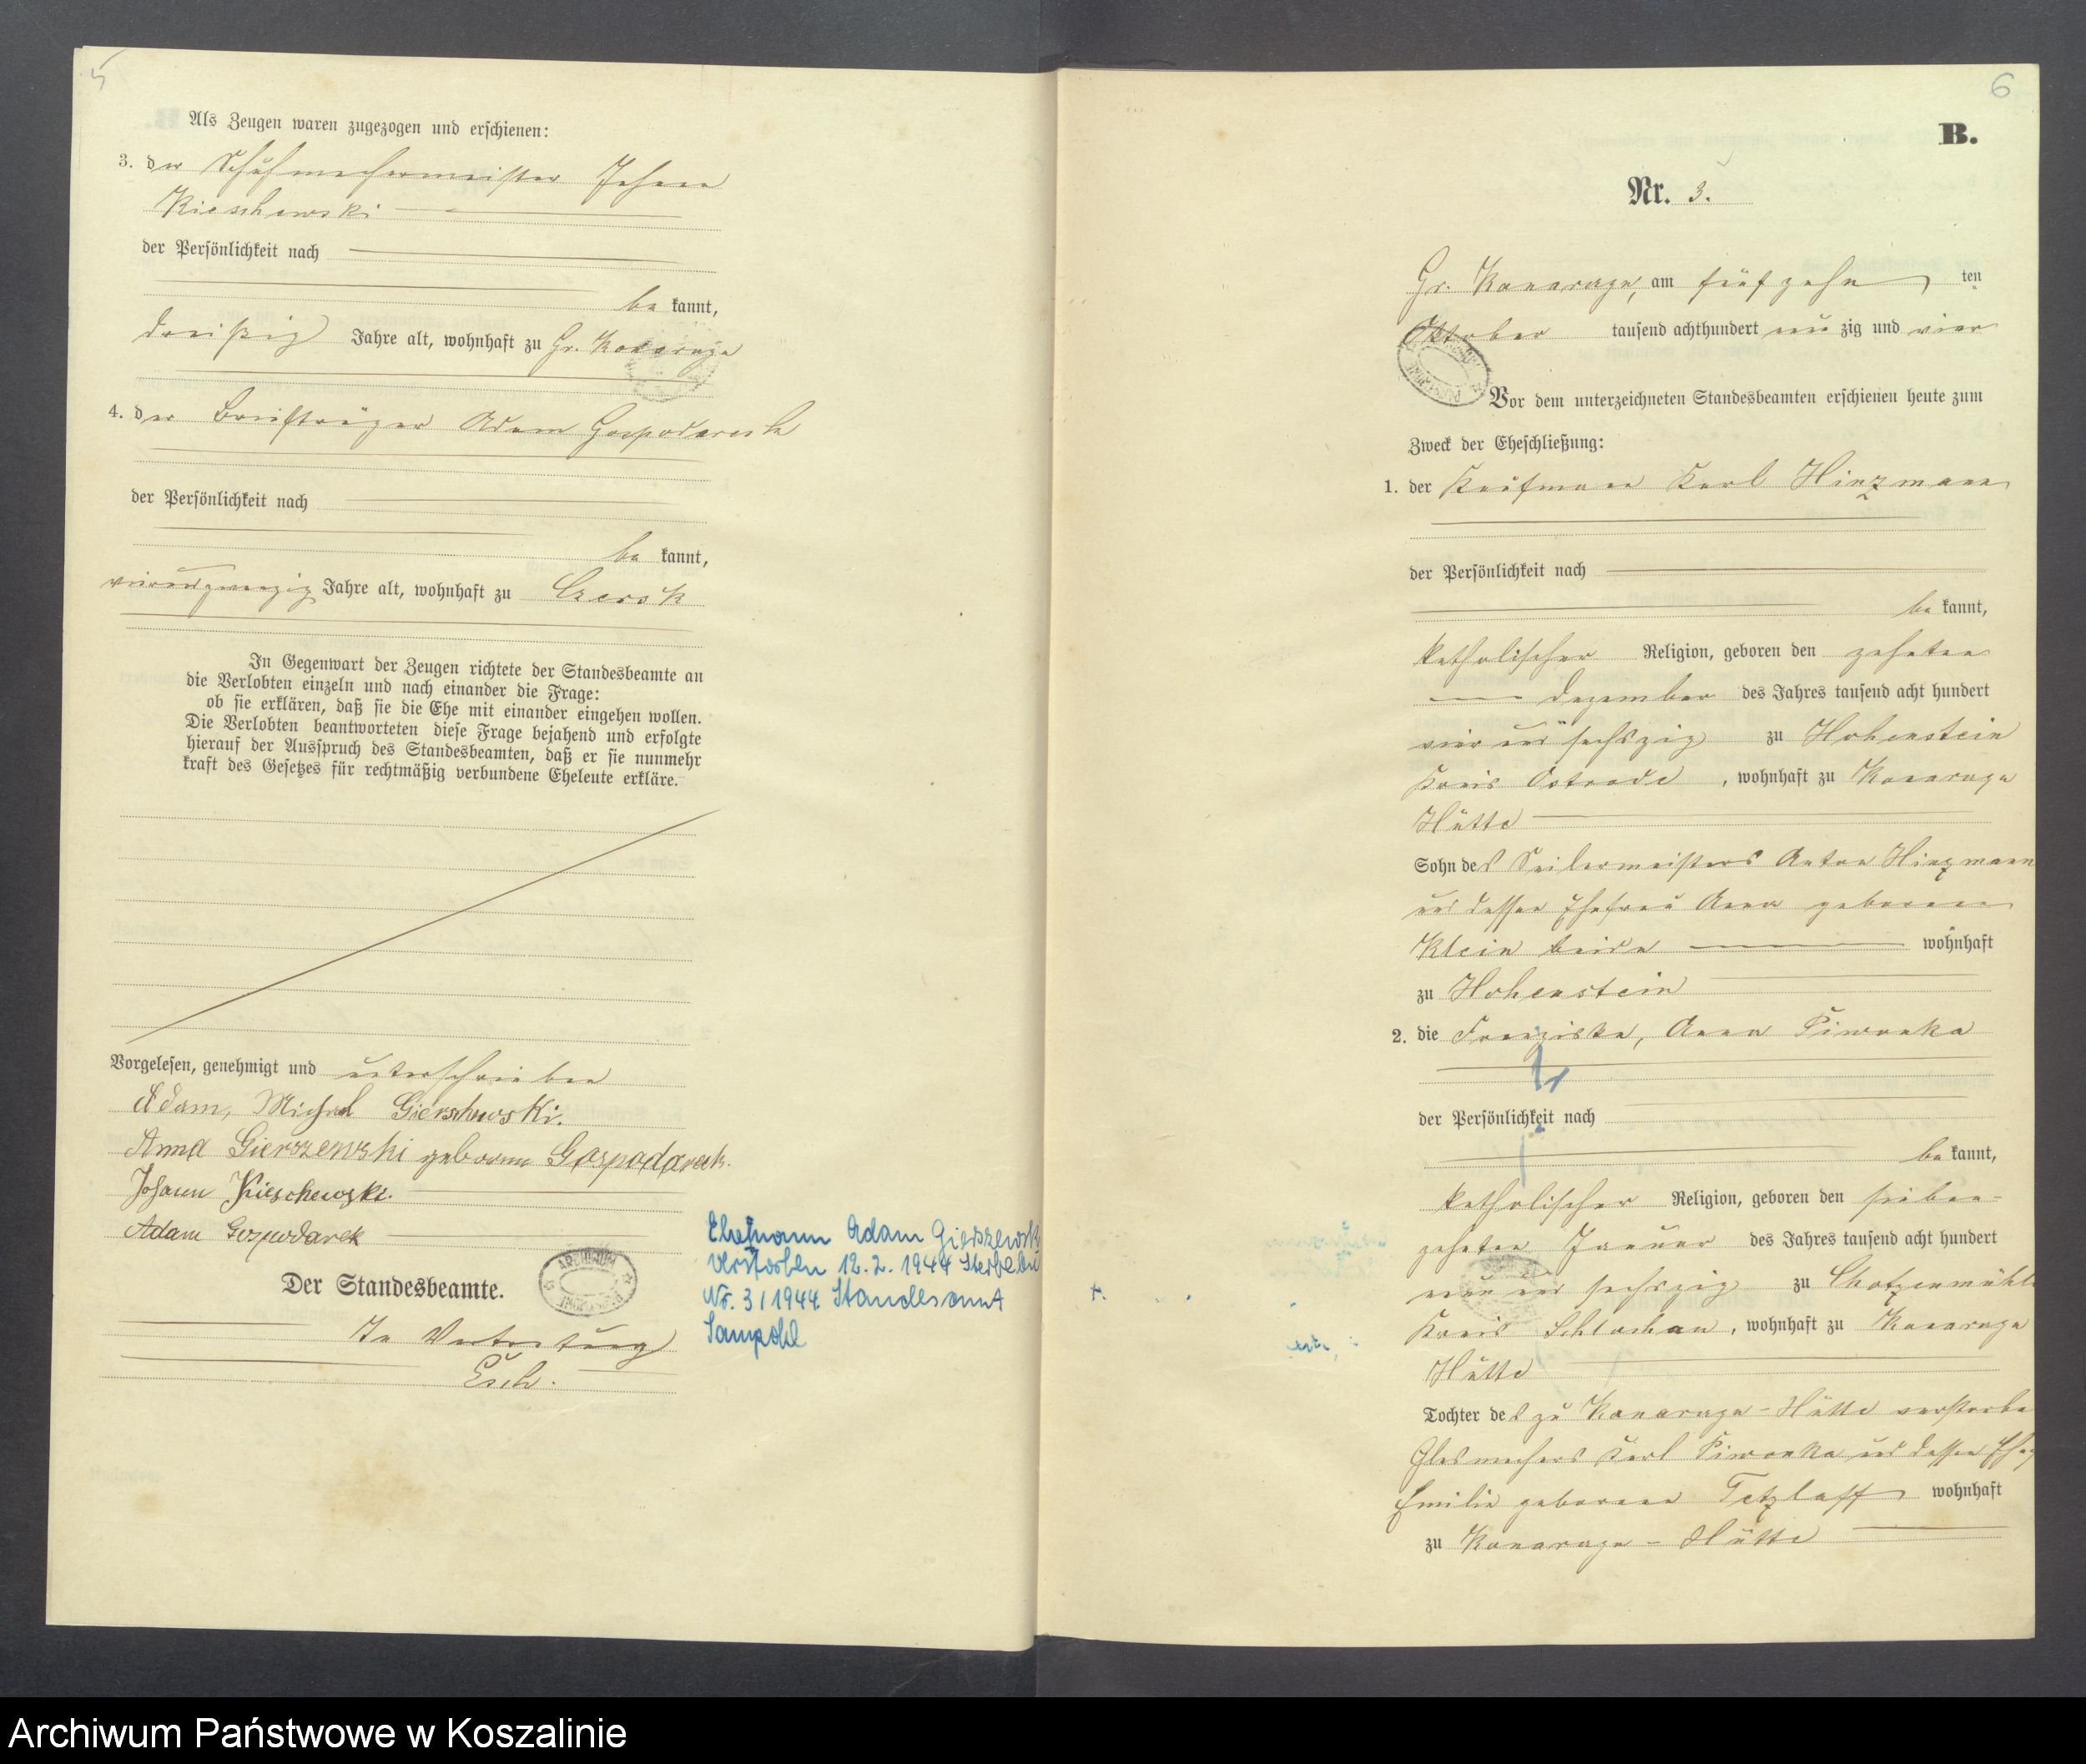 5
Als Zeugen waren zugezogen und erschienen:
3. der Schuhmachermeister Johann
Kieschewski
der Persönlichkeit nach
be kannt,
dreißig Jahre alt, wohnhaft zu Gr. Konarage
4. der Briefträger Adam Gospodarek
der Persönlichkeit nach
be kannt,
vierundzwanzig Jahre alt, wohnhaft zu Czersk
In Gegenwart der Zeugen richtete der Standesbeamte an
die Verlobten einzeln und nach einander die Frage:
ob sie erklären, daß sie die Ehe mit einander eingehen wollen.
Die Verlobten beantworteten diese Frage bejahend und erfolgte
hierauf der Ausspruch des Standesbeamten, daß er sie nunmehr
kraft des Gesetzes für rechtmäßig verbundene Eheleute erkläre.
Vorgelesen, genehmigt und unterschrieben
Adam, Michael Gierschewski.
Anna Gierszewski geborene Gospodarek.
Johann Kieschewski.
Adam Gospodarek
Der Standesbeamte.
In Vertretung
Esch.
Ehemann Adam Gierszewski
verstorben 12.2.1944 Sterbebu
Nr. 3/1944 Standesamt
Sampohl
ARCHIWUM
6
B.
Nr. 3.
Gr. Konarage, am fünfzehn ten
Oktober tausend achthundert neun zig und vier
Vor dem unterzeichneten Standesbeamten erschienen heute zum
Zweck der Eheschließung:
1. der Kaufmann Karl Hinzmann
der Persönlichkeit nach
be kannt,
katholischer Religion, geboren den zehnten
Dezember des Jahres tausend acht hundert
vier und sechszig zu Hohenstein
Kreis Ostrode, wohnhaft zu Konarage
Hütte
Sohn des Seilermeisters Anton Hinzmann
und dessen Ehefrau Anna geborene
Klein beide wohnhaft
zu Hohenstein
2. die Franziska, Anna Piwonka
der Persönlichkeit nach
be kannt,
katholischer Religion, geboren den sieben-
zehnten Januar des Jahres tausend acht hundert
neun und sechszig zu Chotzenmühl
Kreis Schlochau, wohnhaft zu Konarage
Hütte
Tochter des zu Konarage-Hütte verstorbe
Glasmachers Karl Piwonka und dessen Ehe
Emilie geborene Tetzlaff wohnhaft
zu Konarage-Hütte
Archiwum Państwowe w Koszalinie